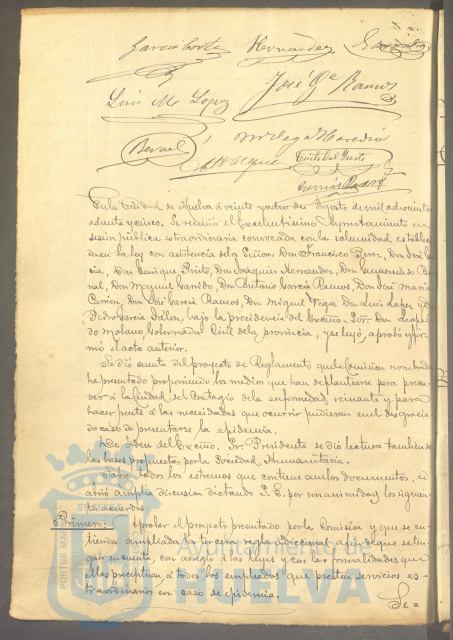 García Corta Hernández
Luis M. Lopez José Gª Ramos
Bernal M. Vega Heredia
Vazquez Cristobal Prieto
En la Ciudad de Huelva á veinte y de Agosto de mil ochocientos
ochenta y cinco. Se reunió el Excelentísimo Ayuntamiento en
sesión pública extraordinaria convocada con la solemnidad estable-
cida en la ley con asistencia de los Señores Don Francisco Perez, Don José Gar-
cia, Don Enrique Prieto, Don Joaquin Hernandez, Don Ber-
nal, Don Manuel Garrido, Don Antonio Garcia Ramos, Don José Maria
Carrion, Don José Garcia Ramos, Don Miguel Vega, Don Luis Lopez, y Don
Pedro García Jalon, bajo la presidencia del Excmo. Sor. Don Leopol-
do Molano Gobernador Civil de la provincia, y se leyó, aprobó y fir-
mó el acta anterior.
Se dió cuenta del proyecto de Reglamento que la Comision nombrada
ha presentado proponiendo los medios que han de plantearse para preca-
ver á la Ciudad del contagio de la enfermedad reinante y para
hacer frente á las necesidades que ocurrir pudieran en el desgracia-
do caso de presentarse la epidemia.
De órden del Excmo. Sr. Presidente se dió lectura tambien de
las bases propuestas por la Sociedad Humanitaria.
Sobre todos los estremos que contiene ambos documentos, se
abrió amplia discusion dictando S.E. por unanimidad los siguien-
tes acuerdos:
Primero: Aprobar el proyecto presentado por la Comision y que se en-
tienda ampliada la tercera regla adiccional, á fin de que se ten-
gan en cuenta, con arreglo á las leyes y con las formalidades que
ellas preceptuan, á todos los empleados que presten servicios es-
traordinarios en caso de epidemia.
Se=
PORTUS MARIS
Ayuntamiento de
HUELVA